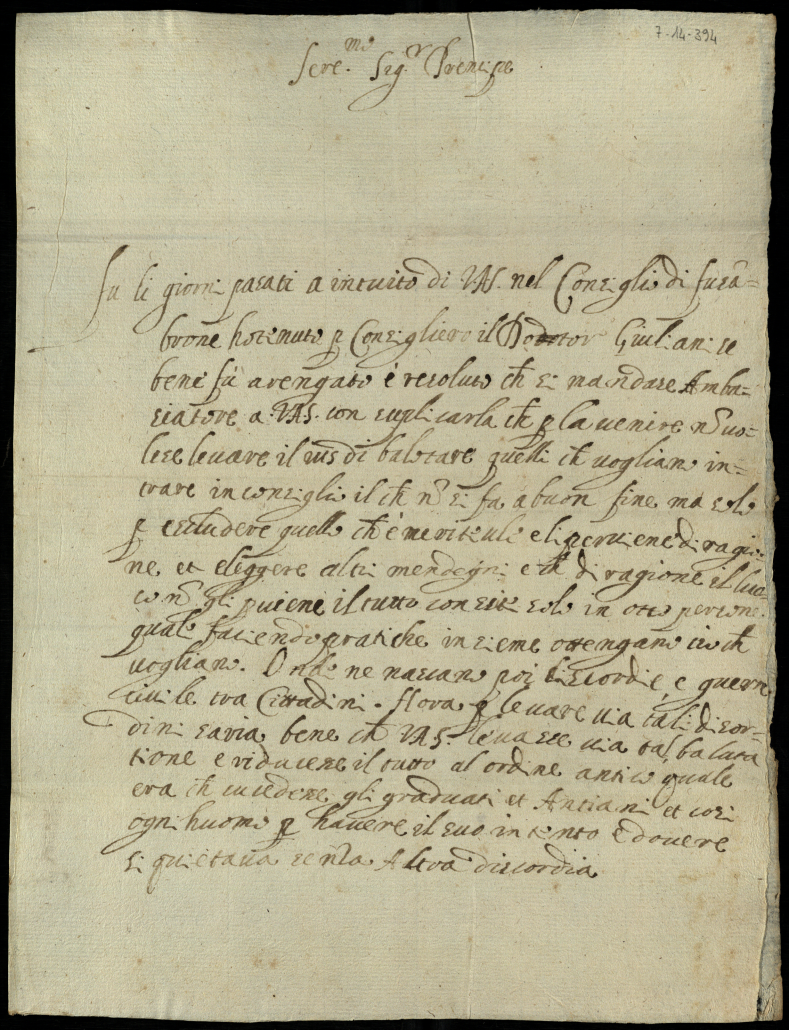 7-14-394
Sere.mo Sig.r Prencipe
Fu li giorni pasati a intuito di V.A.S. nel Consiglio di fusa=
brone hotenuto p Consigliero il Dottor Giuliani se
bene fù arengato è resoluto ch si mandase Amba=
siatore a V.A.S. con suplicarla ch p la venire nō vo=
lese levare il ius di balotare quelli ch vogliano in=
trare in consiglio il ch nō si fa a buon fine ma solo
p escludere quello ch è meritevole e li perviene di ragio
ne et eleggere altri mendegni e ch di ragione il luo
co nō gli pviene il tutto consiste solo in otto persone
quale faciendo pratiche insieme ottengano cio ch
vogliano. Onde ne nascano poi discordie, e guerre
civile tra Cittadini. Hora p levare via tali discor=
dini saria bene ch V.A.S. levasse via tal balota
tione e riducese il tutto al ordine antico quale
era ch sucedese gli graduati et Antiani et cosi
ogni huomo p havere il suo intento e dovere
si quietava senza Altra discordia